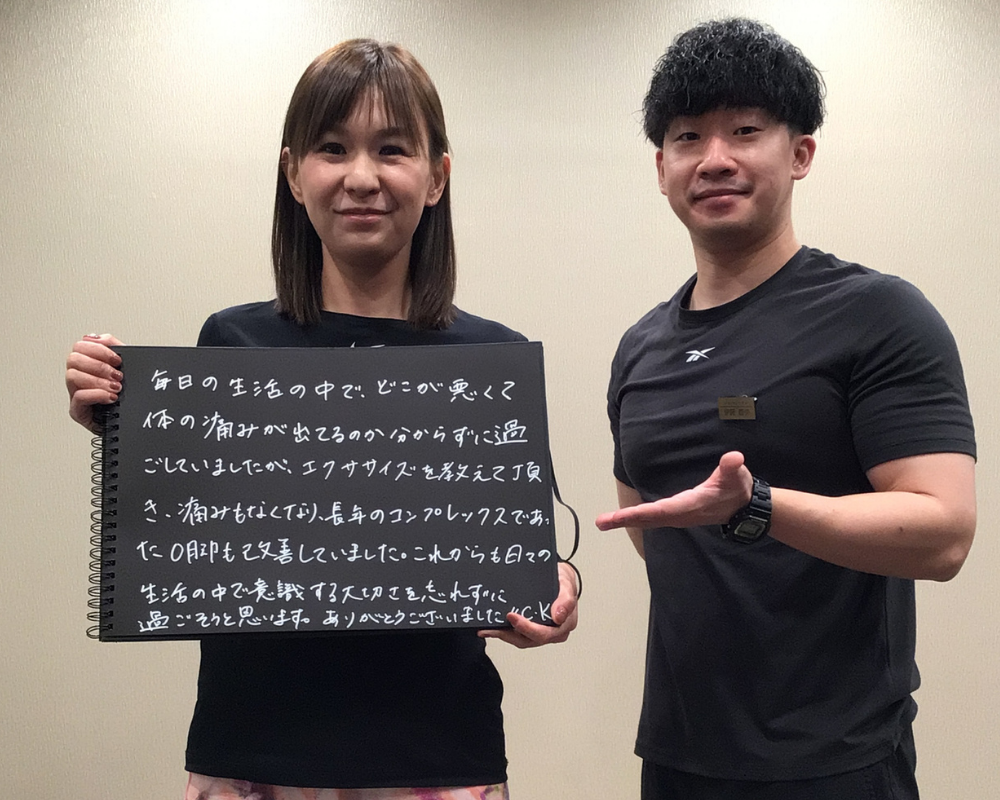 毎日の生活の中で、どこが悪くて
体の痛みが出てるのか分からずに過
ごしていましたが、エクササイズを教えて頂
き、痛みもなくなり、長年のコンプレックスであっ
たO脚も改善していました。これからも日々の
生活の中で意識する大切さを忘れずに
過ごそうと思います。ありがとうございました〃C.K